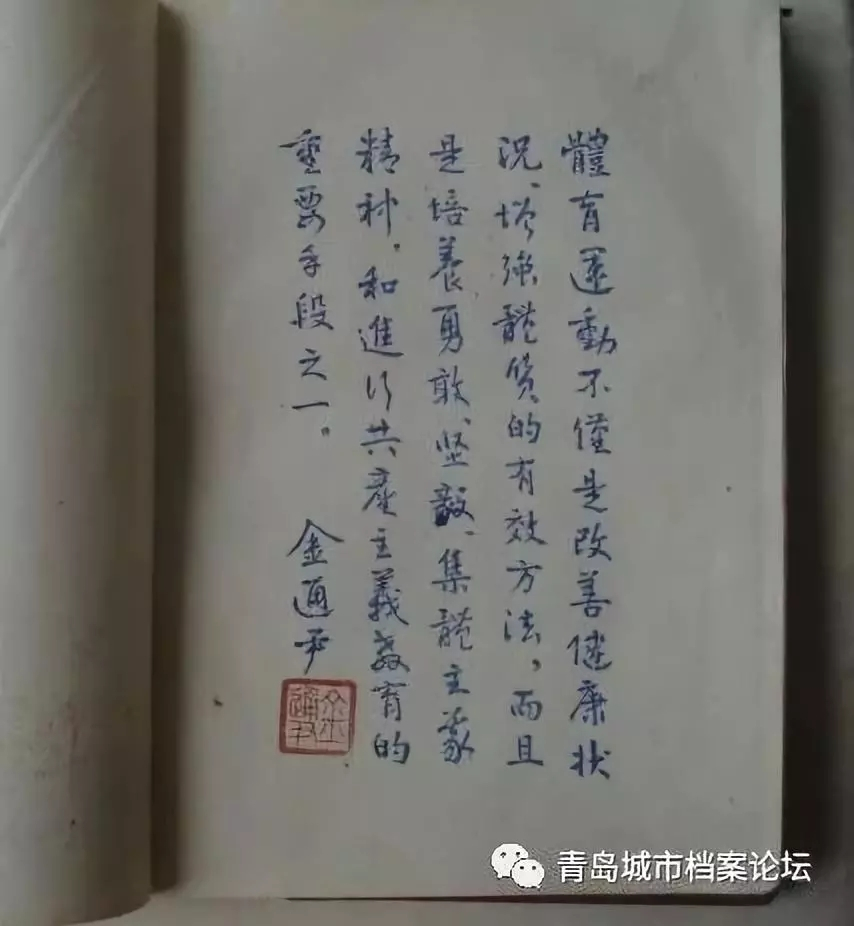 體育運動不僅是改善健康狀
況、增強體質的有效方法，而且
是培養勇敢、坚毅、集體主義
精神，和進行共產主義教育的
重要手段之一。
金通尹
金通尹
青岛城市档案论坛